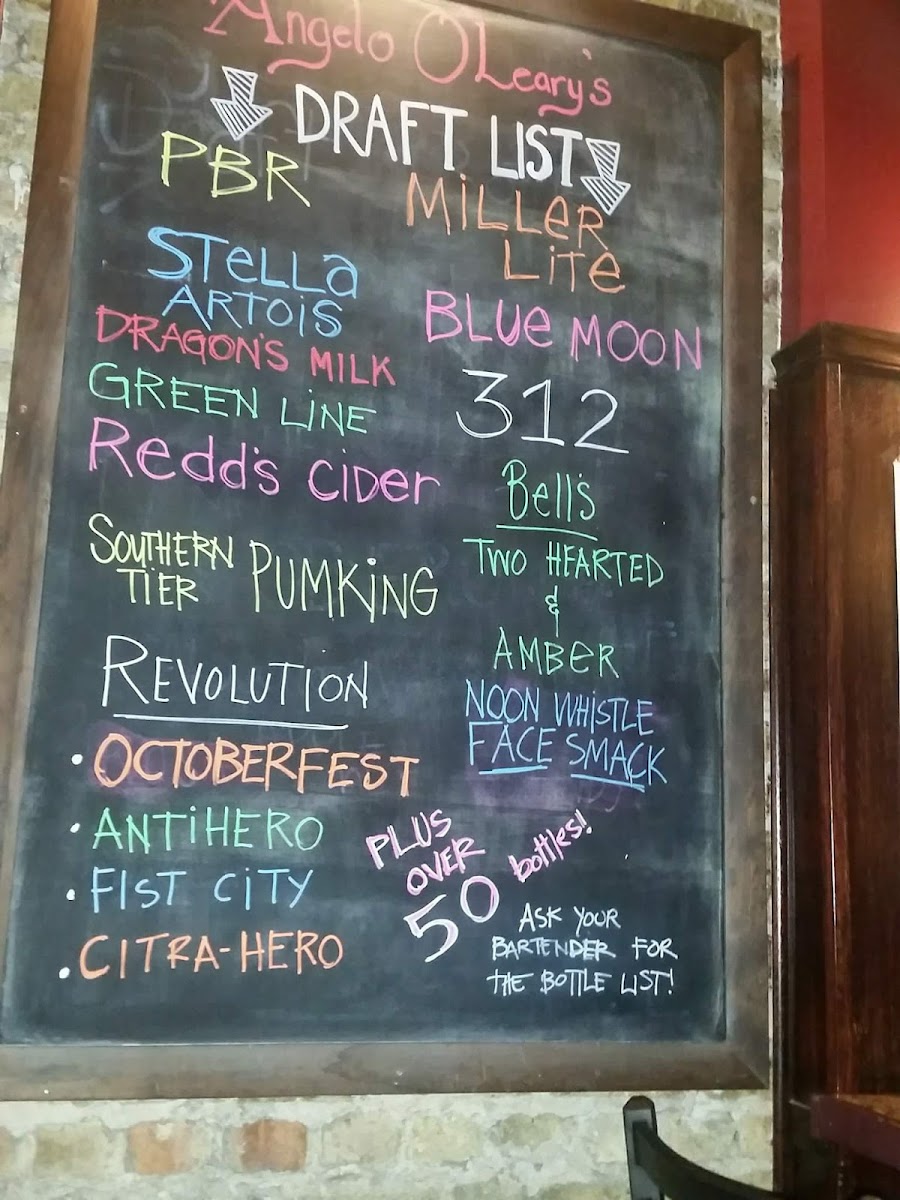 Angelo O'Leary's
DRAFT LIST
PBR
STELLA
ARTOIS
DRAGON'S MILK
GREEN LINE
Redd's CIDer
SOUTHERN
TIER
PUMKiNG
REVOLUTION
• OCTOBERFEST
• ANTiHERO
• FIST CiTY
• CITRA-HERO
MiLLER
LiTE
BLUe MOON
312
Bell's
TWO HEARTED
&
AMBER
NOON WHiSTLE
FACE SMACK
PLUS
OVER
50 bottles!
ASK YOUR
BARTENDER FOR
THE BOTTLE LIST!